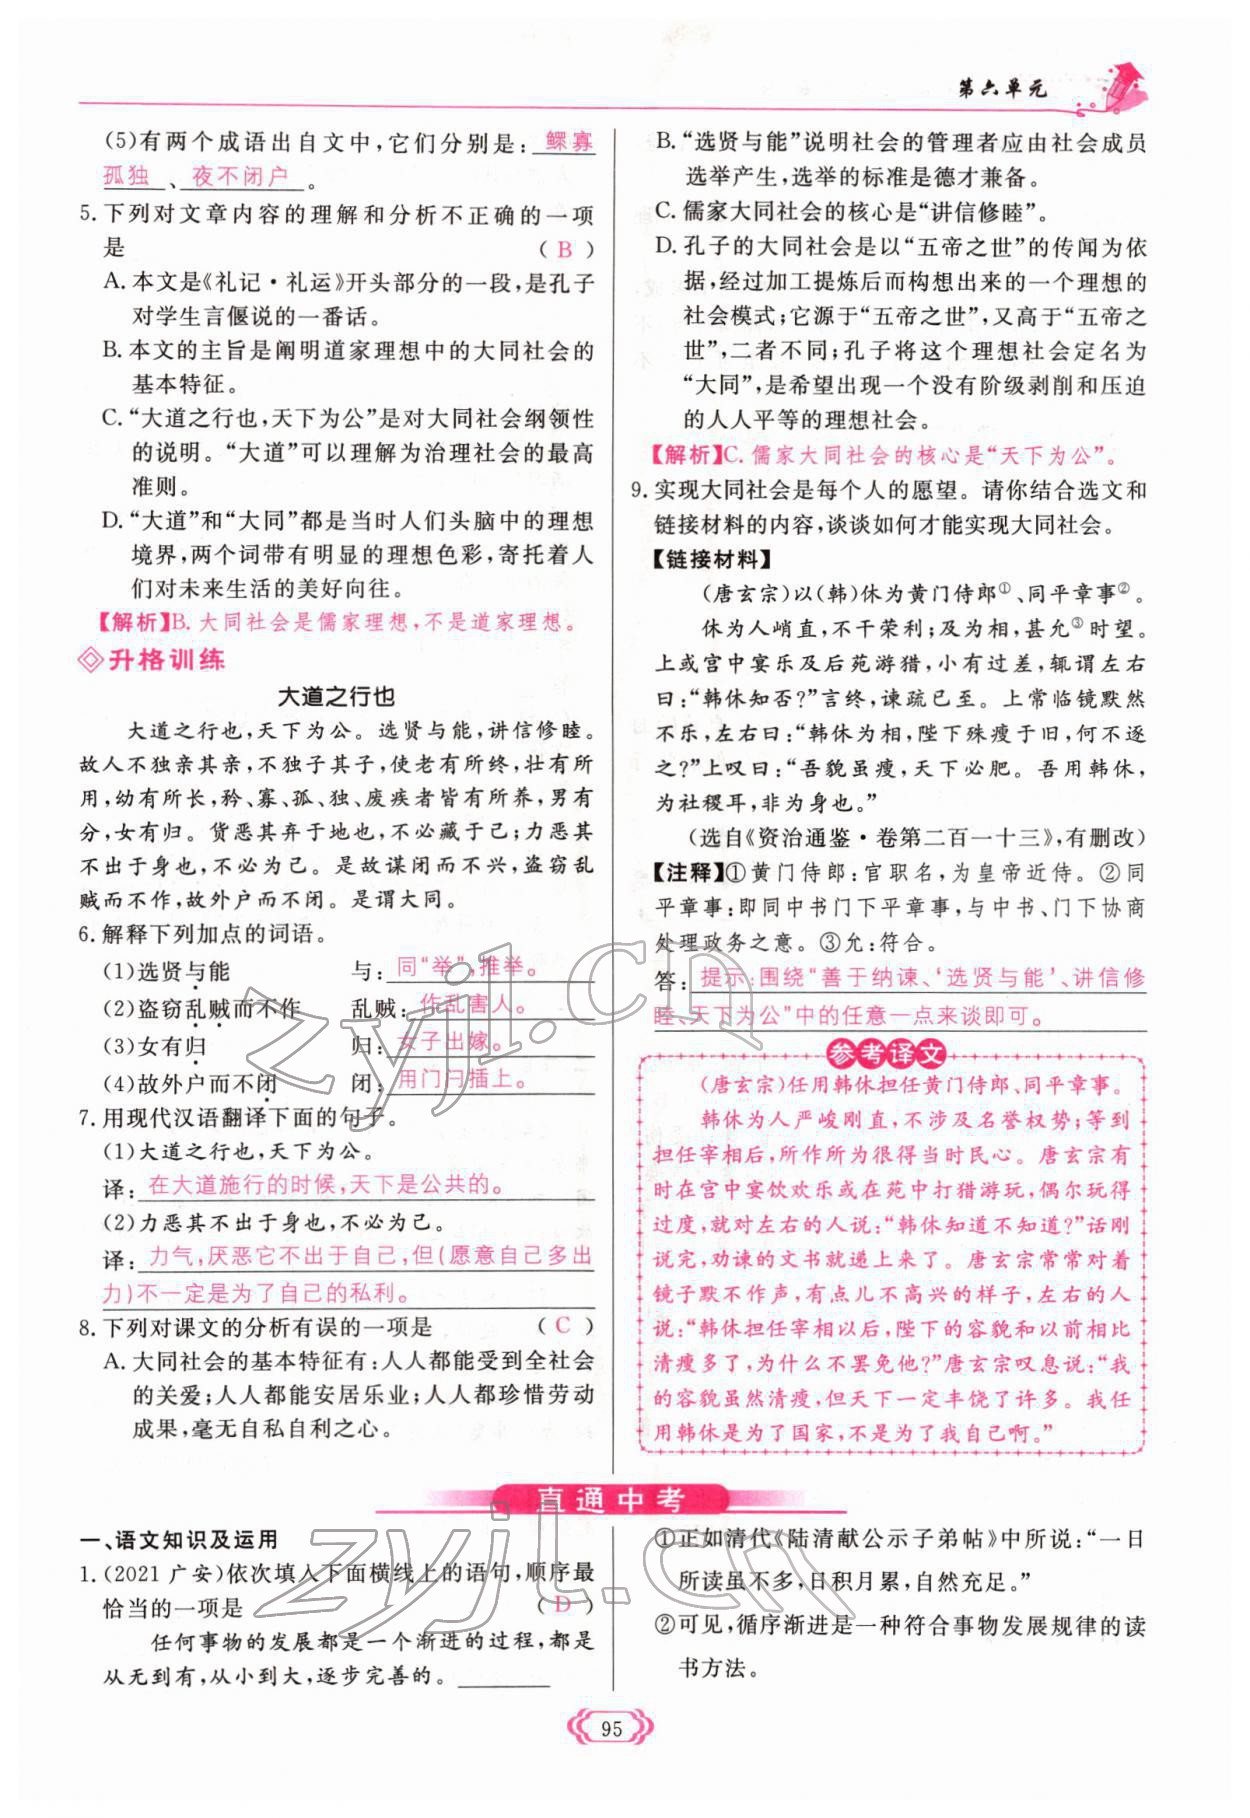 第六单元
(5)有两个成语出自文中,它们分别是:鳏寡
孤独、夜不闭户。
5.下列对文章内容的理解和分析不正确的一项
是 (B)
A.本文是《礼记·礼运》开头部分的一段,是孔子
对学生言偃说的一番话。
B.本文的主旨是阐明道家理想中的大同社会的
基本特征。
C.“大道之行也,天下为公”是对大同社会纲领性
的说明。“大道”可以理解为治理社会的最高
准则。
D.“大道”和“大同”都是当时人们头脑中的理想
境界,两个词带有明显的理想色彩,寄托着人
们对未来生活的美好向往。
【解析】B.大同社会是儒家理想,不是道家理想。
升格训练
大道之行也
大道之行也,天下为公。选贤与能,讲信修睦。
故人不独亲其亲,不独子其子,使老有所终,壮有所
用,幼有所长,矜、寡、孤、独、废疾者皆有所养,男有
分,女有归。货恶其弃于地也,不必藏于己;力恶其
不出于身也,不必为己。是故谋闭而不兴,盗窃乱
贼而不作,故外户而不闭。是谓大同。
6.解释下列加点的词语。
(1)选贤与能 与:同“举”,推举。
(2)盗窃乱贼而不作 乱贼:作乱害人。
(3)女有归 归:女子出嫁。
(4)故外户而不闭 闭:用门闩插上。
7.用现代汉语翻译下面的句子。
(1)大道之行也,天下为公。
译:在大道施行的时候,天下是公共的。
(2)力恶其不出于身也,不必为己。
译:力气,厌恶它不出于自己,但(愿意自己多出
力)不一定是为了自己的私利。
8.下列对课文的分析有误的一项是 (C)
A.大同社会的基本特征有:人人都能受到全社会
的关爱;人人都能安居乐业;人人都珍惜劳动
成果,毫无自私自利之心。
B.“选贤与能”说明社会的管理者应由社会成员
选举产生,选举的标准是德才兼备。
C.儒家大同社会的核心是“讲信修睦”。
D.孔子的大同社会是以“五帝之世”的传闻为依
据,经过加工提炼后而构想出来的一个理想的
社会模式;它源于“五帝之世”,又高于“五帝之
世”,二者不同;孔子将这个理想社会定名为
“大同”,是希望出现一个没有阶级剥削和压迫
的人人平等的理想社会。
【解析】C.儒家大同社会的核心是“天下为公”。
9.实现大同社会是每个人的愿望。请你结合选文和
链接材料的内容,谈谈如何才能实现大同社会。
【链接材料】
(唐玄宗)以(韩)休为黄门侍郎①、同平章事②。
休为人峭直,不干荣利;及为相,甚允③时望。
上或宫中宴乐及后苑游猎,小有过差,辄谓左右
曰:“韩休知否?”言终,谏疏已至。上常临镜默然
不乐,左右曰:“韩休为相,陛下殊瘦于旧,何不逐
之?”上叹曰:“吾貌虽瘦,天下必肥。吾用韩休,
为社稷耳,非为身也。”
(选自《资治通鉴·卷第二百一十三》,有删改)
【注释】①黄门侍郎:官职名,为皇帝近侍。②同
平章事:即同中书门下平章事,与中书、门下协商
处理政务之意。③允:符合。
答:提示:围绕“善于纳谏、‘选贤与能’、讲信修
睦、天下为公”中的任意一点来谈即可。
参考译文
(唐玄宗)任用韩休担任黄门侍郎、同平章事。
韩休为人严峻刚直,不涉及名誉权势;等到
担任宰相后,所作所为很得当时民心。唐玄宗有
时在宫中宴饮欢乐或在苑中打猎游玩,偶尔玩得
过度,就对左右的人说:“韩休知道不知道?”话刚
说完,劝谏的文书就递上来了。唐玄宗常常对着
镜子默不作声,有点儿不高兴的样子,左右的人
说:“韩休担任宰相以后,陛下的容貌和以前相比
清瘦多了,为什么不罢免他?”唐玄宗叹息说:“我
的容貌虽然清瘦,但天下一定丰饶了许多。我任
用韩休是为了国家,不是为了我自己啊。”
直通中考
一、语文知识及运用
1.(2021 广安)依次填入下面横线上的语句,顺序最
恰当的一项是 (D)
任何事物的发展都是一个渐进的过程,都是
从无到有,从小到大,逐步完善的。______
①正如清代《陆清献公示子弟帖》中所说:“一日
所读虽不多,日积月累,自然充足。”
②可见,循序渐进是一种符合事物发展规律的读
书方法。
95
zyjl.cn
zyjl.cn